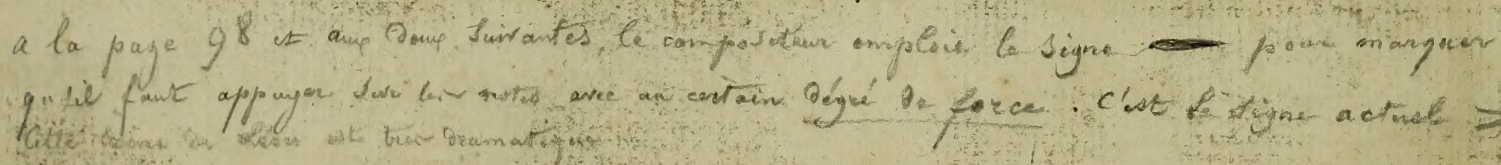 a la page 98 et aux deux suivantes, le compositeur emploie le signe pour marquer
qu'il faut appuyer sur les notes avec un certain dégré de force. C'est le signe actuel >
Cette scène de est très dramatique